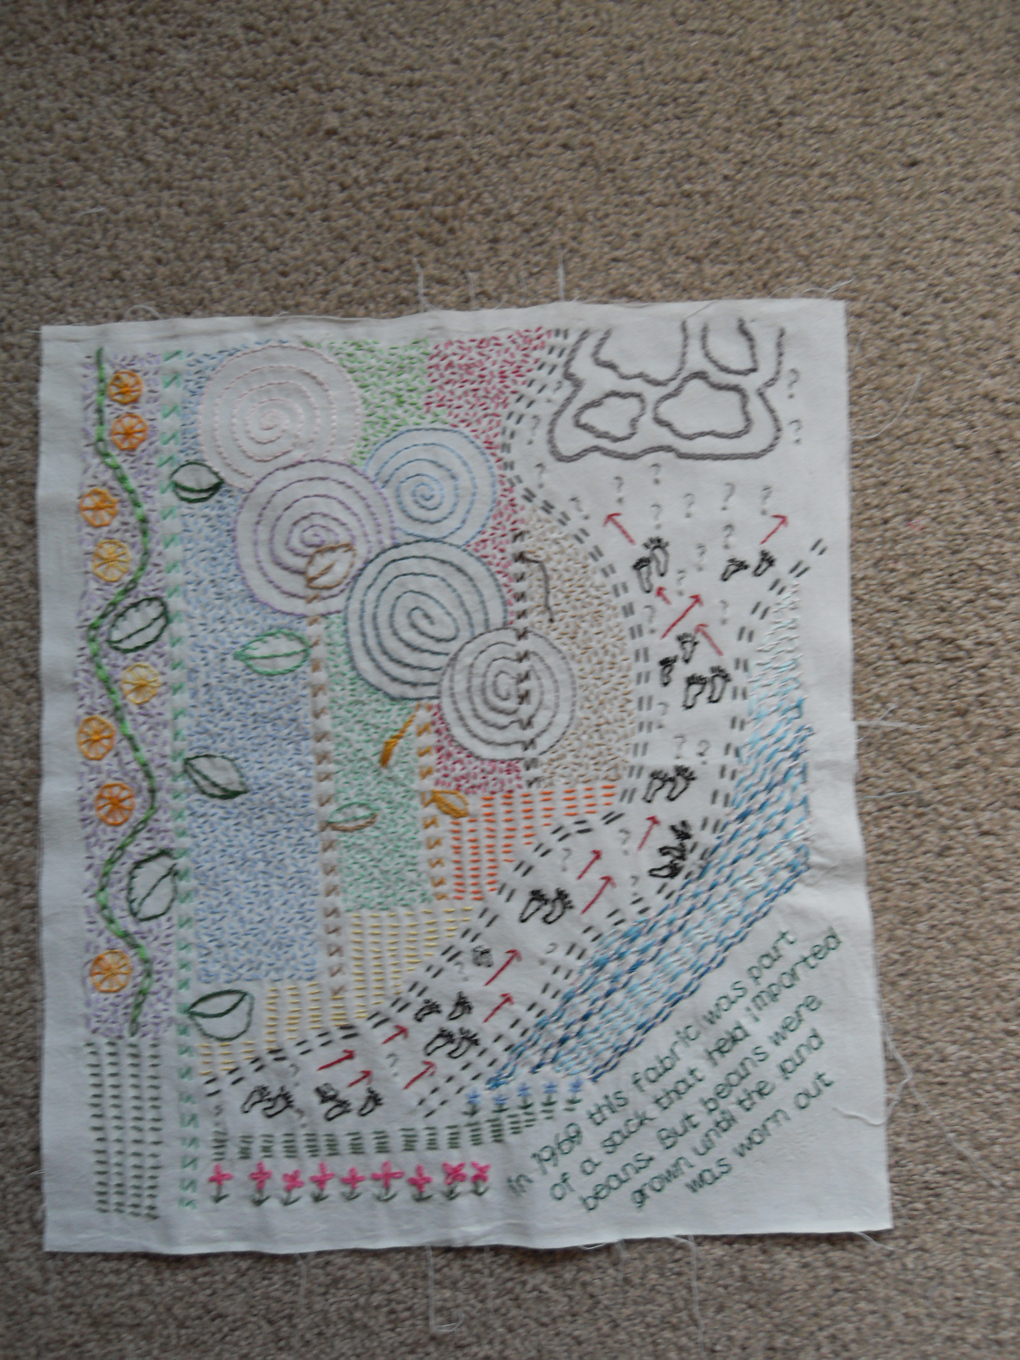 in 1969 this fabric was part
of a sack that held imported
beans. But beans were
grown until the land
was worn out